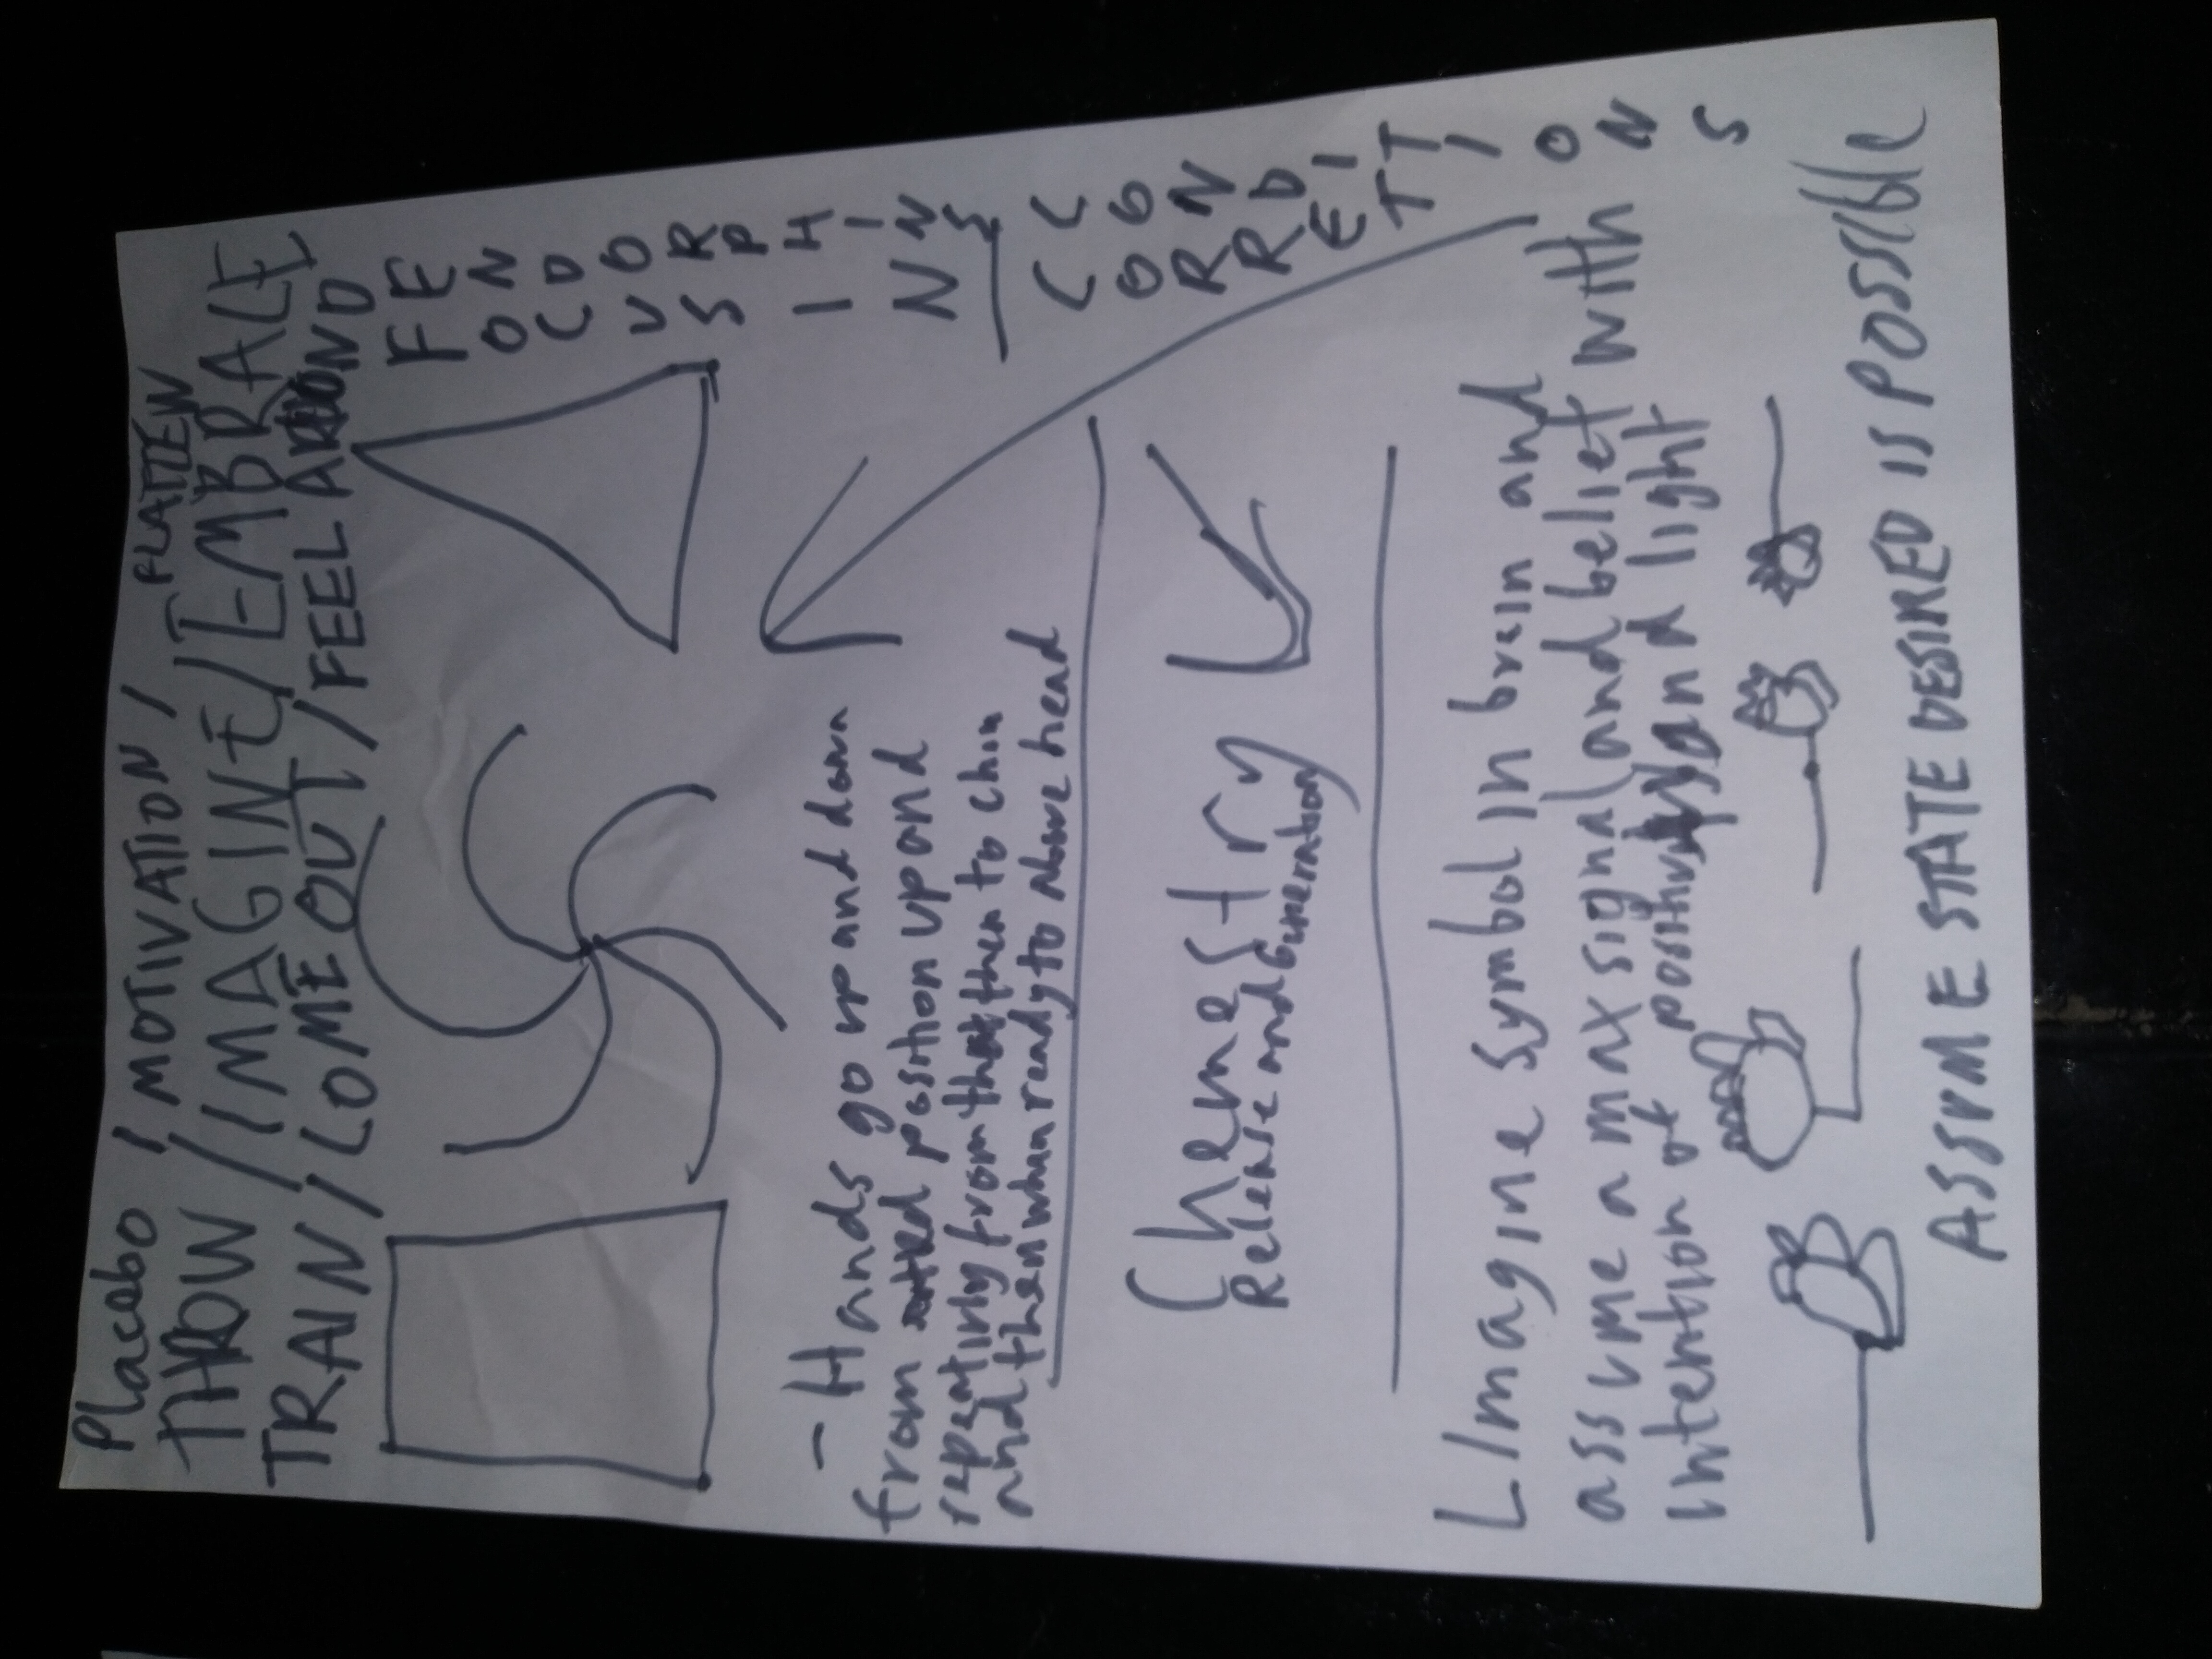 Placebo / MOTIVATION / FLATTEN
THROW / IMAGINE / EMBRACE
TRAIN / COME OUT / FEEL AROUND
FOCUS IN
ENDORPHINS
CORRECT
CONDITIONS
- Hands go up and down
from position up and
repeating from then to chin
and then when ready to above head
Chemestry
Release and Generation
L Imagine symbol in brain and
assume a max signal and belief with
intention of positivity and light
ASSUME STATE DESIRED IS POSSIBLE